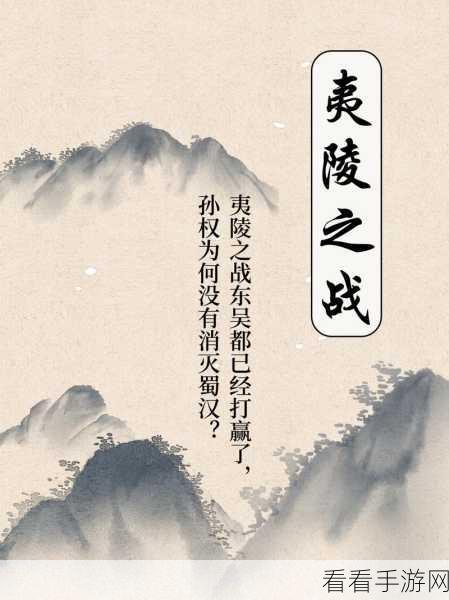 夷陵之战
夷陵之战东吴都已经打赢了，
孙权为何没有消灭蜀汉？
看看手游网